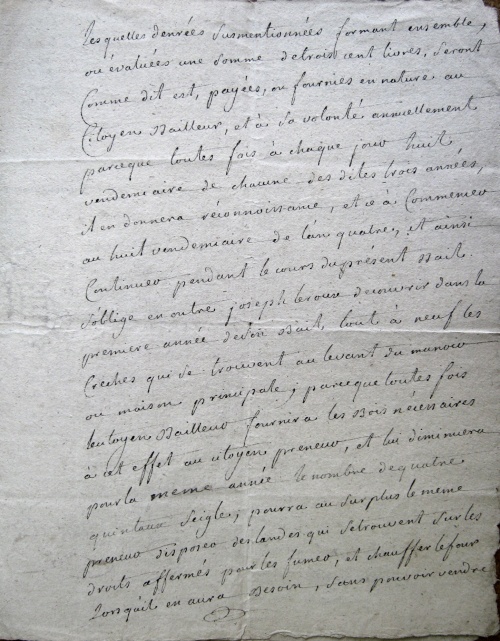 Lesquelles denrées susmentionnées formant ensemble,
ou évaluées une somme detrois cent livres, seront
Comme dit est, payées, ou fournies en nature au
Citoyen Bailleur, et à sa volonté annuellement
parceque toutes fois à chaque jour huit,
vendemiaire de chacune des dites trois années,
il en donnera réconnoissance, et ce à Commencer
au huit vendemiaire de l'an quatre, et ainsi
Continuer pendant le cours du présent Bail.
S'oblige en outre joseph leroux decouvrir dans la
premiere année deson Bail, tout à neuf les
Creches qui se trouvent au levant du manoir
ou maison principale; parceque toutes fois
lecitoyen Bailleur fournira les Bois nécessaires
à cet effet au citoyen preneur, et lui diminuera
pour la meme année le nombre dequatre
quintaux seigle; pourra au surplus le meme
preneur disposer deslandes qui setrouvent sur les
droits affermés pour les fumer, et chauffer le four
lorsquil en aura Besoin, sans pouvoir vendre